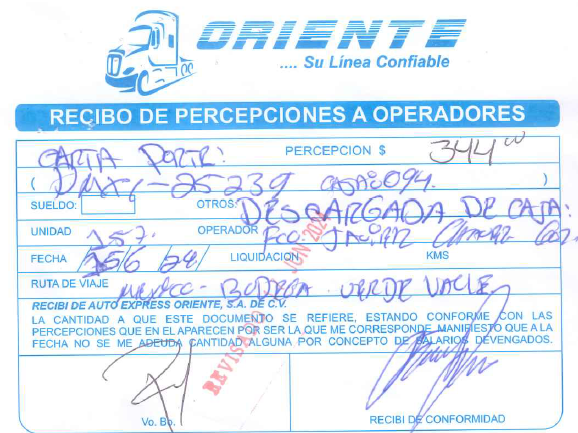 ORIENTE
.... Su Línea Confiable
RECIBO DE PERCEPCIONES A OPERADORES
CARTA PORTE: PERCEPCION $ 344 00
( DMX1-25239 CAJA: 094. )
SUELDO: OTROS: DESCARGADA DE CAJA:
UNIDAD 157. OPERADOR Fco. JAVIER
FECHA 15/6/24 LIQUIDACION KMS
RUTA DE VIAJE MEXICO - BODEGA VERDE VALLE
RECIBI DE AUTO EXPRESS ORIENTE, S.A. DE C.V.
LA CANTIDAD A QUE ESTE DOCUMENTO SE REFIERE, ESTANDO CONFORME CON LAS
PERCEPCIONES QUE EN EL APARECEN POR SER LA QUE ME CORRESPONDE, MANIFIESTO QUE A LA
FECHA NO SE ME ADEUDA CANTIDAD ALGUNA POR CONCEPTO DE SALARIOS DEVENGADOS.
REVISADO JUN 2024
Vo. Bo.
RECIBI DE CONFORMIDAD